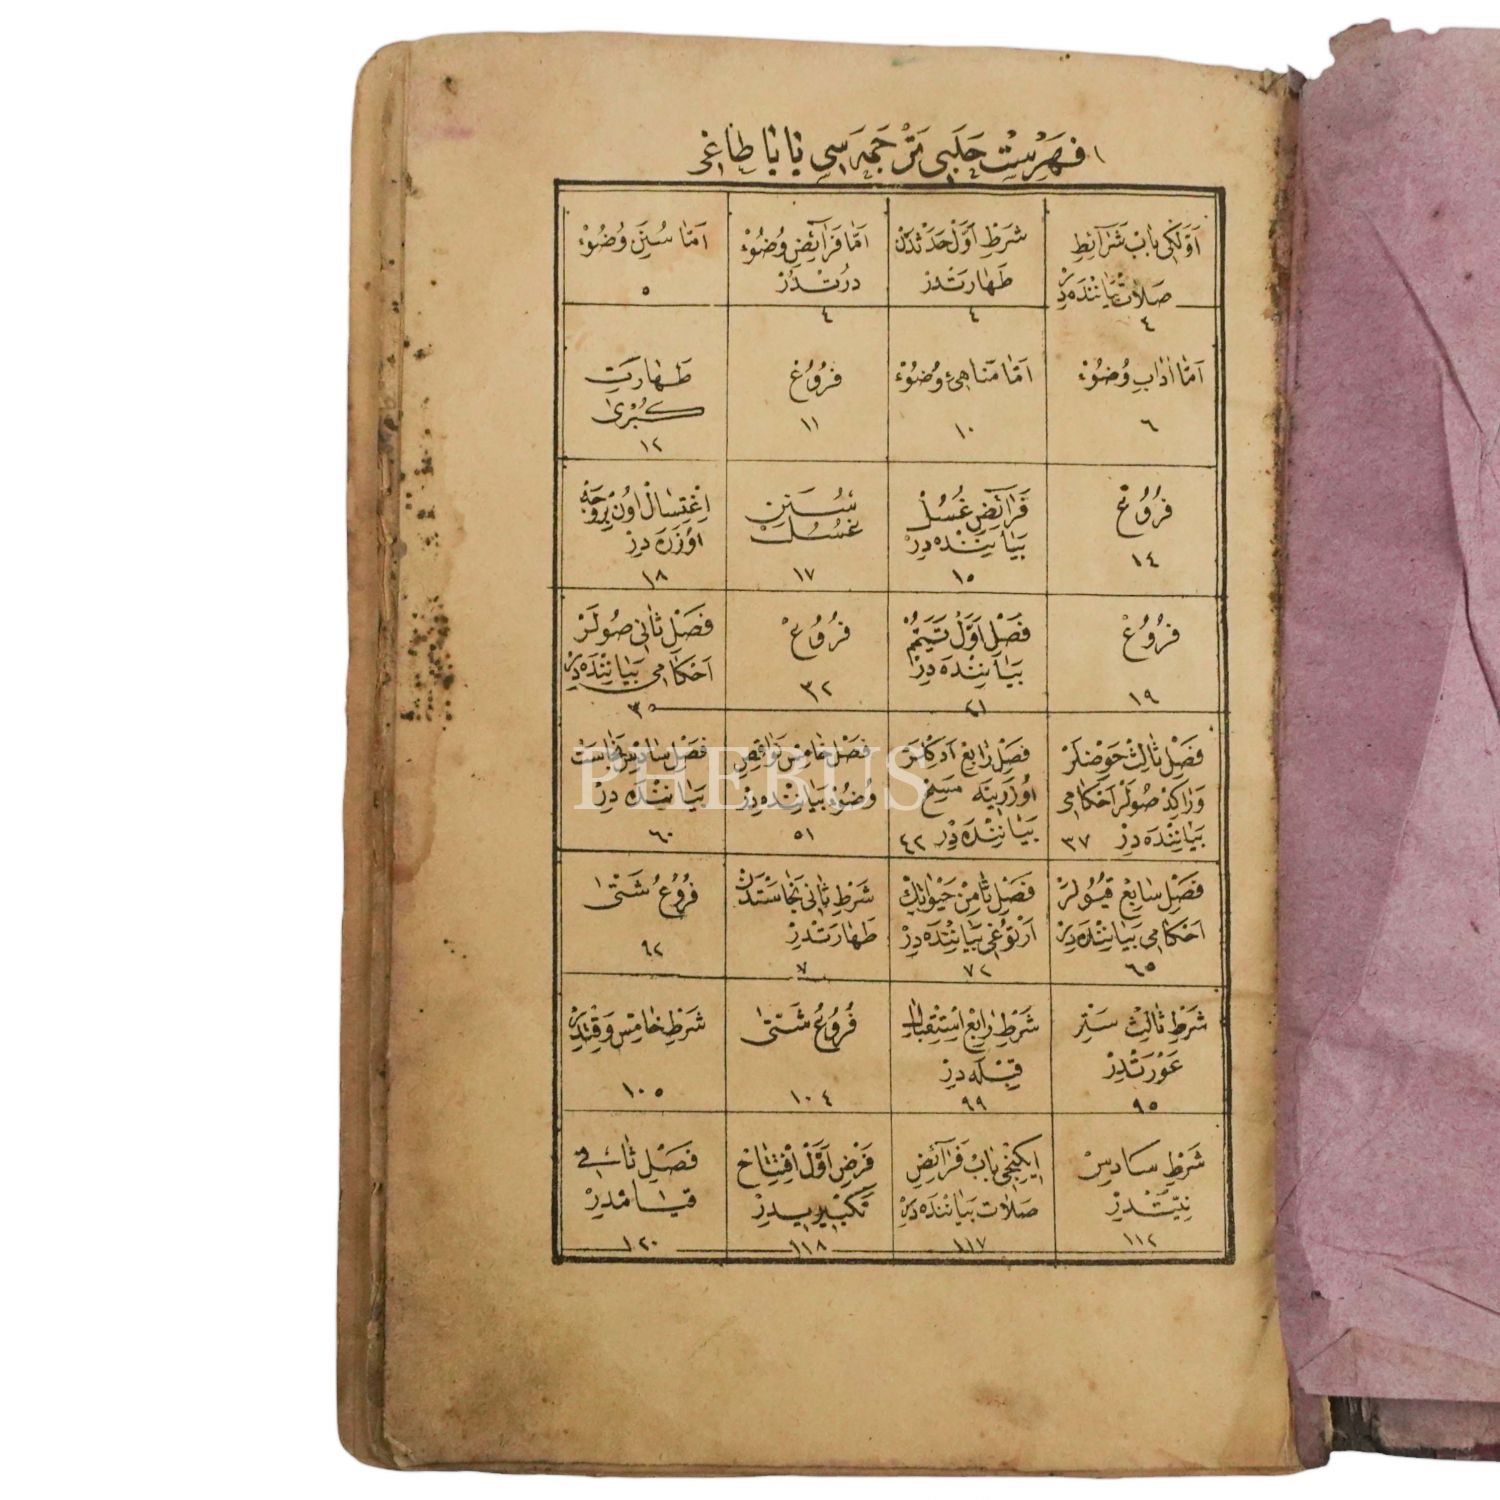 فهرست حلبى ترجمه سى بابا طاغى
اولكى باب شرائط
صلات بياننده در
٤
شرط اول حدثدن
طهارتدر
٤
اما فرائض وضوء
درتدر
٤
اما سنن وضوء
٥
اما اداب وضوء
٦
اما مناهئ وضوء
١٠
فروع
١١
طهارت
كبرى
١٢
فروع
١٤
فرائض غسل
بياننده در
١٥
سنن
غسل
١٧
اغتسال اون بر وجه
اوزره در
١٨
فروع
١٩
فصل اول تيمم
بياننده در
٢١
فروع
٣٢
فصل ثانى صولر
احكامى بياننده در
٣٥
فصل ثالث حوضلر
وراكد صولر احكامى
بياننده در ٣٧
فصل رابع ادكلر
اوزرينه مسح
بياننده در ٤٢
فصل خامس نواقض
وضوء بياننده در
٥١
فصل سادس نجاست
بياننده در
٦٠
فصل سابع قيولر
احكامى بياننده در
٦٥
فصل ثامن حيوانك
ارتوغى بياننده در
٧٢
شرط ثانى نجاستدن
طهارتدر
٧
فروع شتى
٩٢
شرط ثالث ستر
عورتدر
٩٥
شرط رابع استقبال
قبله در
٩٩
فروع شتى
١٠٤
شرط خامس وقتدر
١٠٥
شرط سادس
نيتدر
١١٢
ايكنجى باب فرائض
صلات بياننده در
١١٧
فرض اول افتتاح
تكبيريدر
١١٨
فصل ثانى
قيامدر
١٢٠
PHEBUS